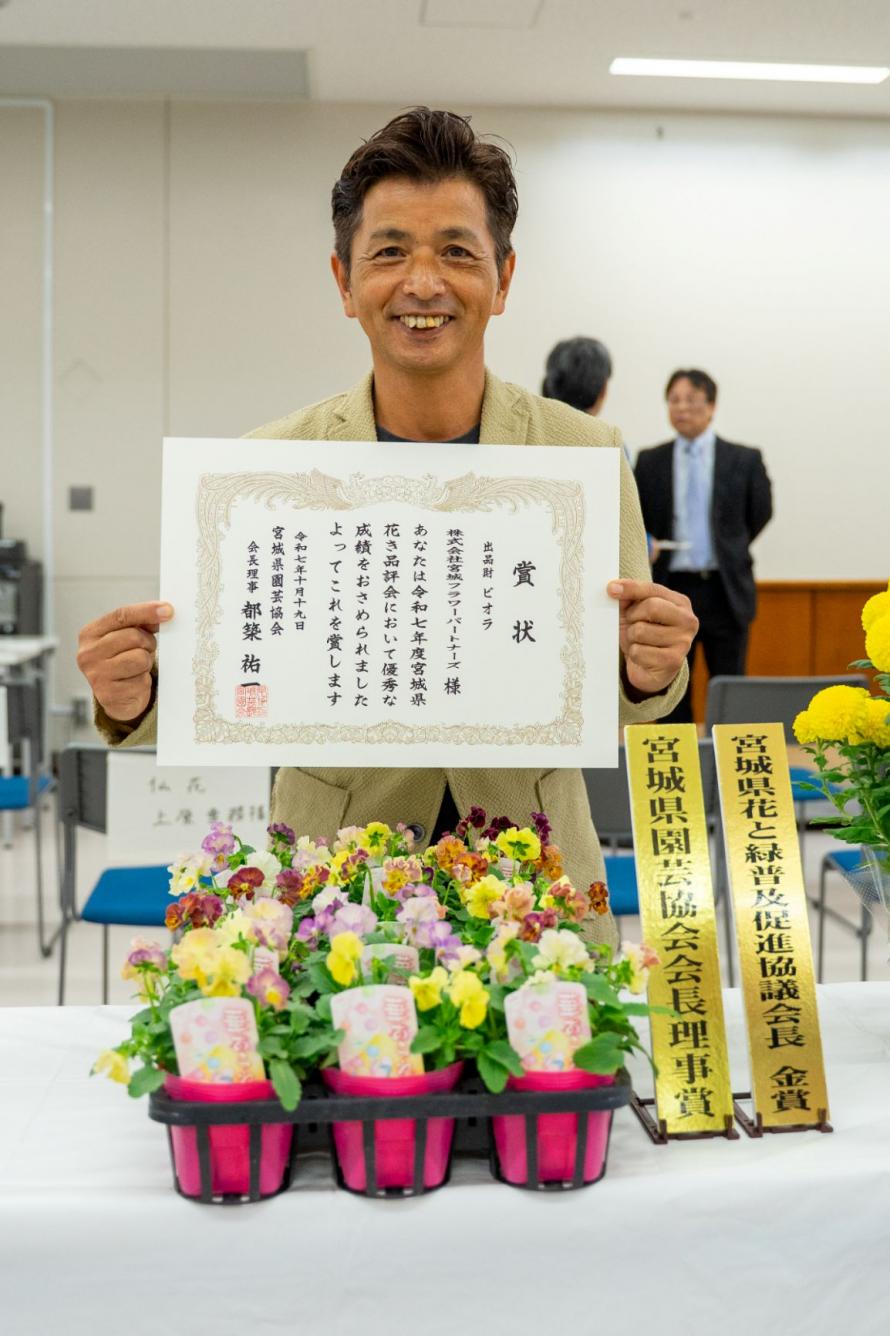 賞状
出品財 ビオラ
株式会社宮城フラワーパートナーズ 様
あなたは令和七年度宮城県
花き品評会において優秀な
成績をおさめられました
よってこれを賞します
令和七年十月十九日
宮城県園芸協会
会長理事 都築 祐一
宮城県園芸協会会長理事賞
宮城県花と緑普及促進協議会長 金賞
仏花